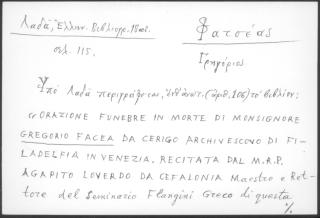 Λαδᾶ, Ἑλλην. Βιβλιογρ. 18 αἰ.
σελ. 115.
Φατσέας
Γρηγόριος
Ὑπὸ Λαδᾶ περιγράφεται, (ἀριθ. 106) τὸ βιβλίον:
« ORAZIONE FUNEBRE IN MORTE DI MONSIGNORE
GREGORIO FACEA DA CERIGO ARCHIVESCOVO DI FI-
LADELFIA IN VENEZIA, RECITATA DAL M.R.P.
AGAPITO LOVERDO DA CEFALONIA Maestro e Ret-
tore del Seminario Flangini Greco di questa
%